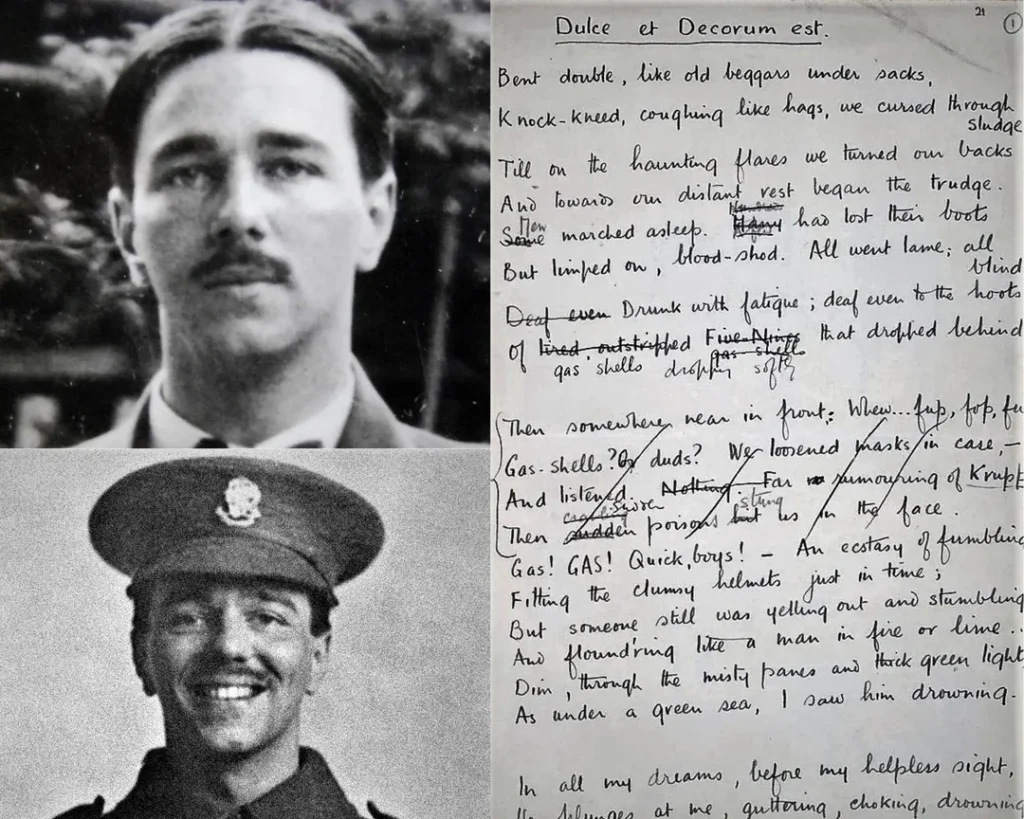 21
1
Dulce et Decorum est.
Bent double, like old beggars under sacks,
Knock-kneed, coughing like hags, we cursed through
sludge
Till on the haunting flares we turned our backs
And towards our distant rest began the trudge.
Men
Some marched asleep. Many had lost their boots
But limped on, blood-shod. All went lame; all
blind
Deaf even Drunk with fatigue; deaf even to the hoots
Of tired, outstripped Five-Nines that dropped behind
gas shells
gas shells dropping softly
Then somewhere near in front: Whew... fup, fop, fu
Gas-shells? Or duds? We loosened masks in case, –
And listened. Nothing. Far rumouring of Krupp
stung
Then sudden poisons hit us in the face.
Gas! GAS! Quick, boys! – An ecstasy of fumbling
Fitting the clumsy helmets just in time;
But someone still was yelling out and stumbling
And flound'ring like a man in fire or lime..
Dim, through the misty panes and thick green light
As under a green sea, I saw him drowning.
In all my dreams, before my helpless sight,
plunges at me, guttering, choking, drowning